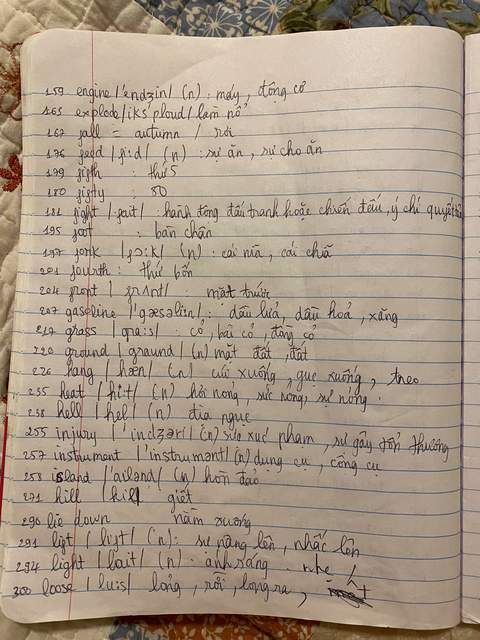 159 engine /'endʒin/ (n) : máy, động cơ
163 explode /iks'ploud/ làm nổ
167 fall = autumn / rơi
176 feed /fi:d/ (n) : sự ăn, sự cho ăn
179 fifth : thứ 5
180 fifty : 50
181 fight /fait/ : hành động đấu tranh hoặc chiến đấu, ý chí quyết
195 foot : bàn chân
197 fork /fɔ:k/ (n) : cái nĩa, cái chĩa
201 fourth : thứ bốn
204 front / frʌnt/ mặt trước
207 gasoline /'gæsəlin/ : dầu lửa, dầu hoả, xăng
217 grass /grɑ:s/ : cỏ, bãi cỏ, đồng cỏ
220 ground / graund/ (n) mặt đất, đất
226 hang /hæŋ/ (n) cúi xuống, gục xuống, treo
235 heat /hi:t/ (n) hơi nóng, sức nóng, sự nóng.
238 hell /hel/ (n) địa ngục
255 injury /'indʒəri/ (n) sự xúc phạm, sự gây tổn thương
257 instrument /'instrumənt/ (n) dụng cụ, công cụ
258 island /'ailənd/ (n) hòn đảo
271 kill /kil/ giết
290 lie down nằm xuống
291 lift /lift/ (n) : sự nâng lên, nhấc lên
294 light /lait/ (n) : ánh sáng . nhẹ /
300 loose /lu:s/ lỏng, rời, lỏng ra,